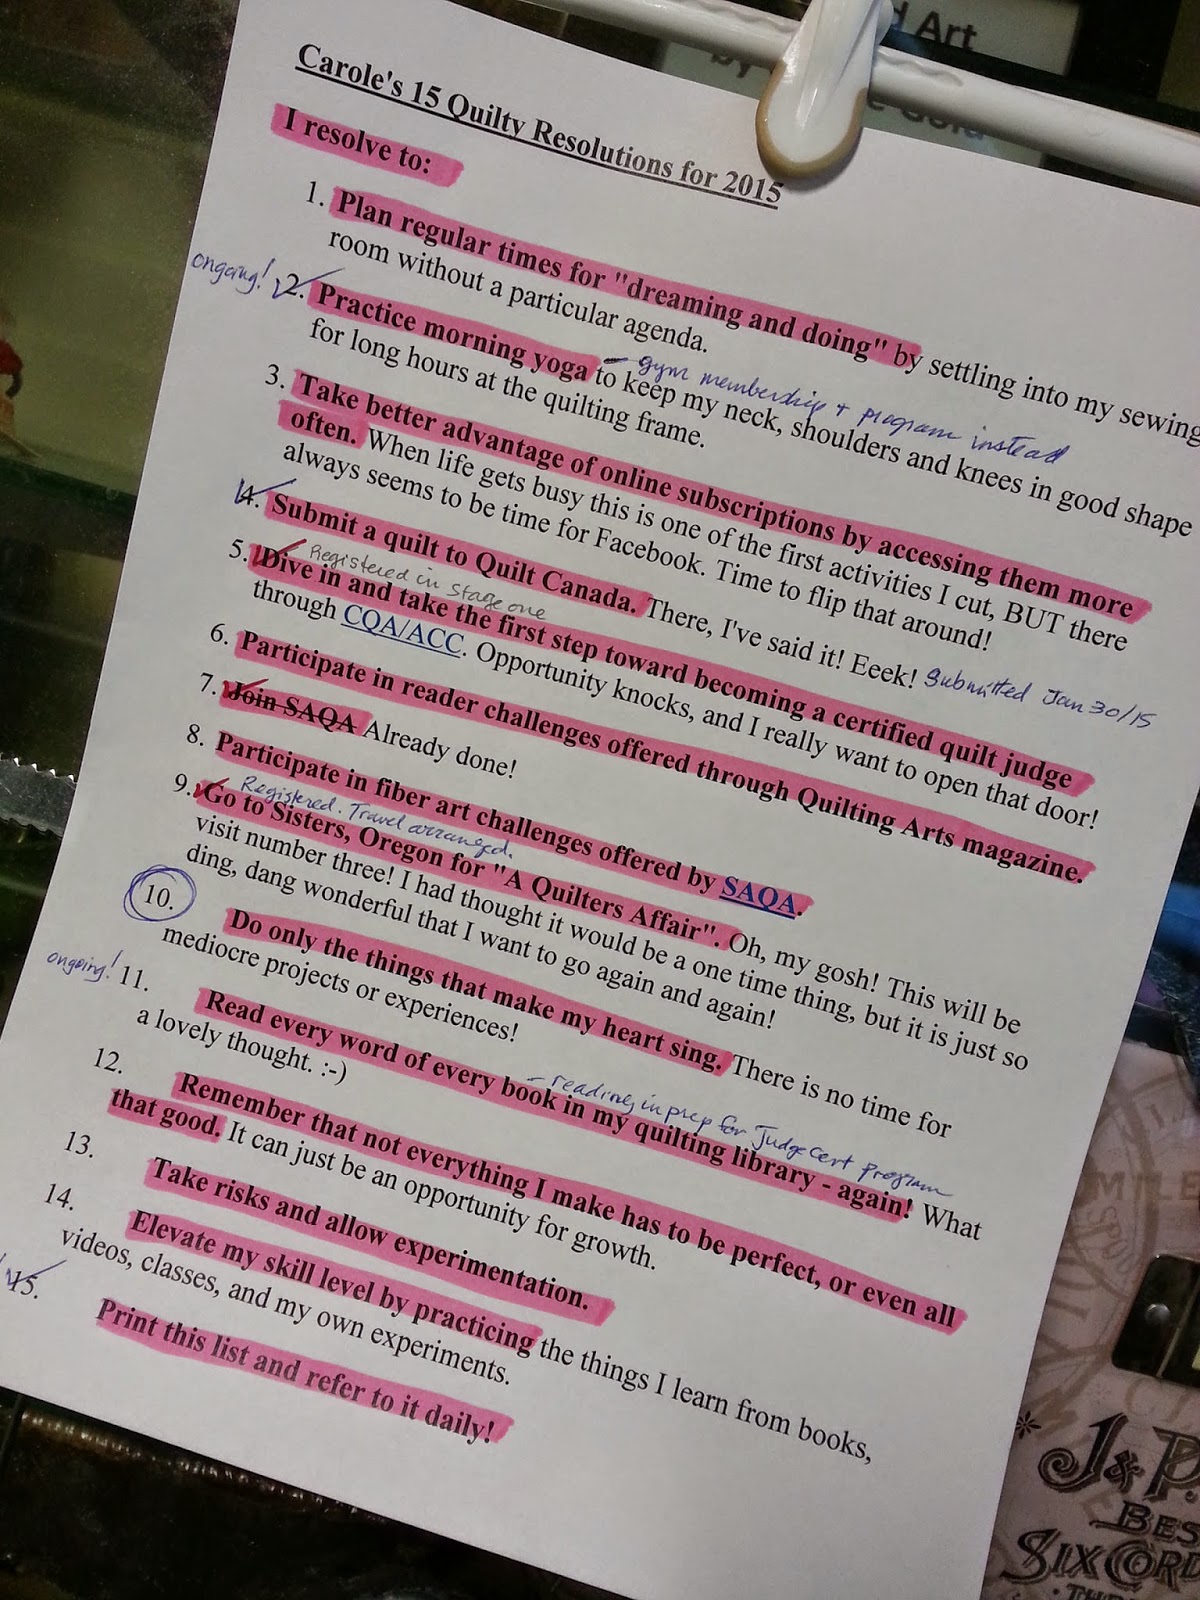 d Art
by
Carole's 15 Quilty Resolutions for 2015
I resolve to:
1. Plan regular times for "dreaming and doing" by settling into my sewing
room without a particular agenda.
ongoing! 2. Practice morning yoga to keep my neck, shoulders and knees in good shape
- gym membership + program instead
for long hours at the quilting frame.
3. Take better advantage of online subscriptions by accessing them more
often. When life gets busy this is one of the first activities I cut, BUT there
always seems to be time for Facebook. Time to flip that around!
4. Submit a quilt to Quilt Canada. There, I've said it! Eeek! Submitted Jan 30/15
Registered in stage one
5. Dive in and take the first step toward becoming a certified quilt judge
through CQA/ACC. Opportunity knocks, and I really want to open that door!
6. Participate in reader challenges offered through Quilting Arts magazine.
7. Join SAQA Already done!
8. Participate in fiber art challenges offered by SAQA.
Registered. Travel arranged.
9. Go to Sisters, Oregon for "A Quilters Affair". Oh, my gosh! This will be
visit number three! I had thought it would be a one time thing, but it is just so
ding, dang wonderful that I want to go again and again!
10. Do only the things that make my heart sing. There is no time for
mediocre projects or experiences!
ongoing! 11. Read every word of every book in my quilting library - again! What
- reading in prep for Judge Cert Program
a lovely thought. :-)
12. Remember that not everything I make has to be perfect, or even all
that good. It can just be an opportunity for growth.
13. Take risks and allow experimentation.
14. Elevate my skill level by practicing the things I learn from books,
videos, classes, and my own experiments.
15. Print this list and refer to it daily!
J & P.
BES
SIX CORD